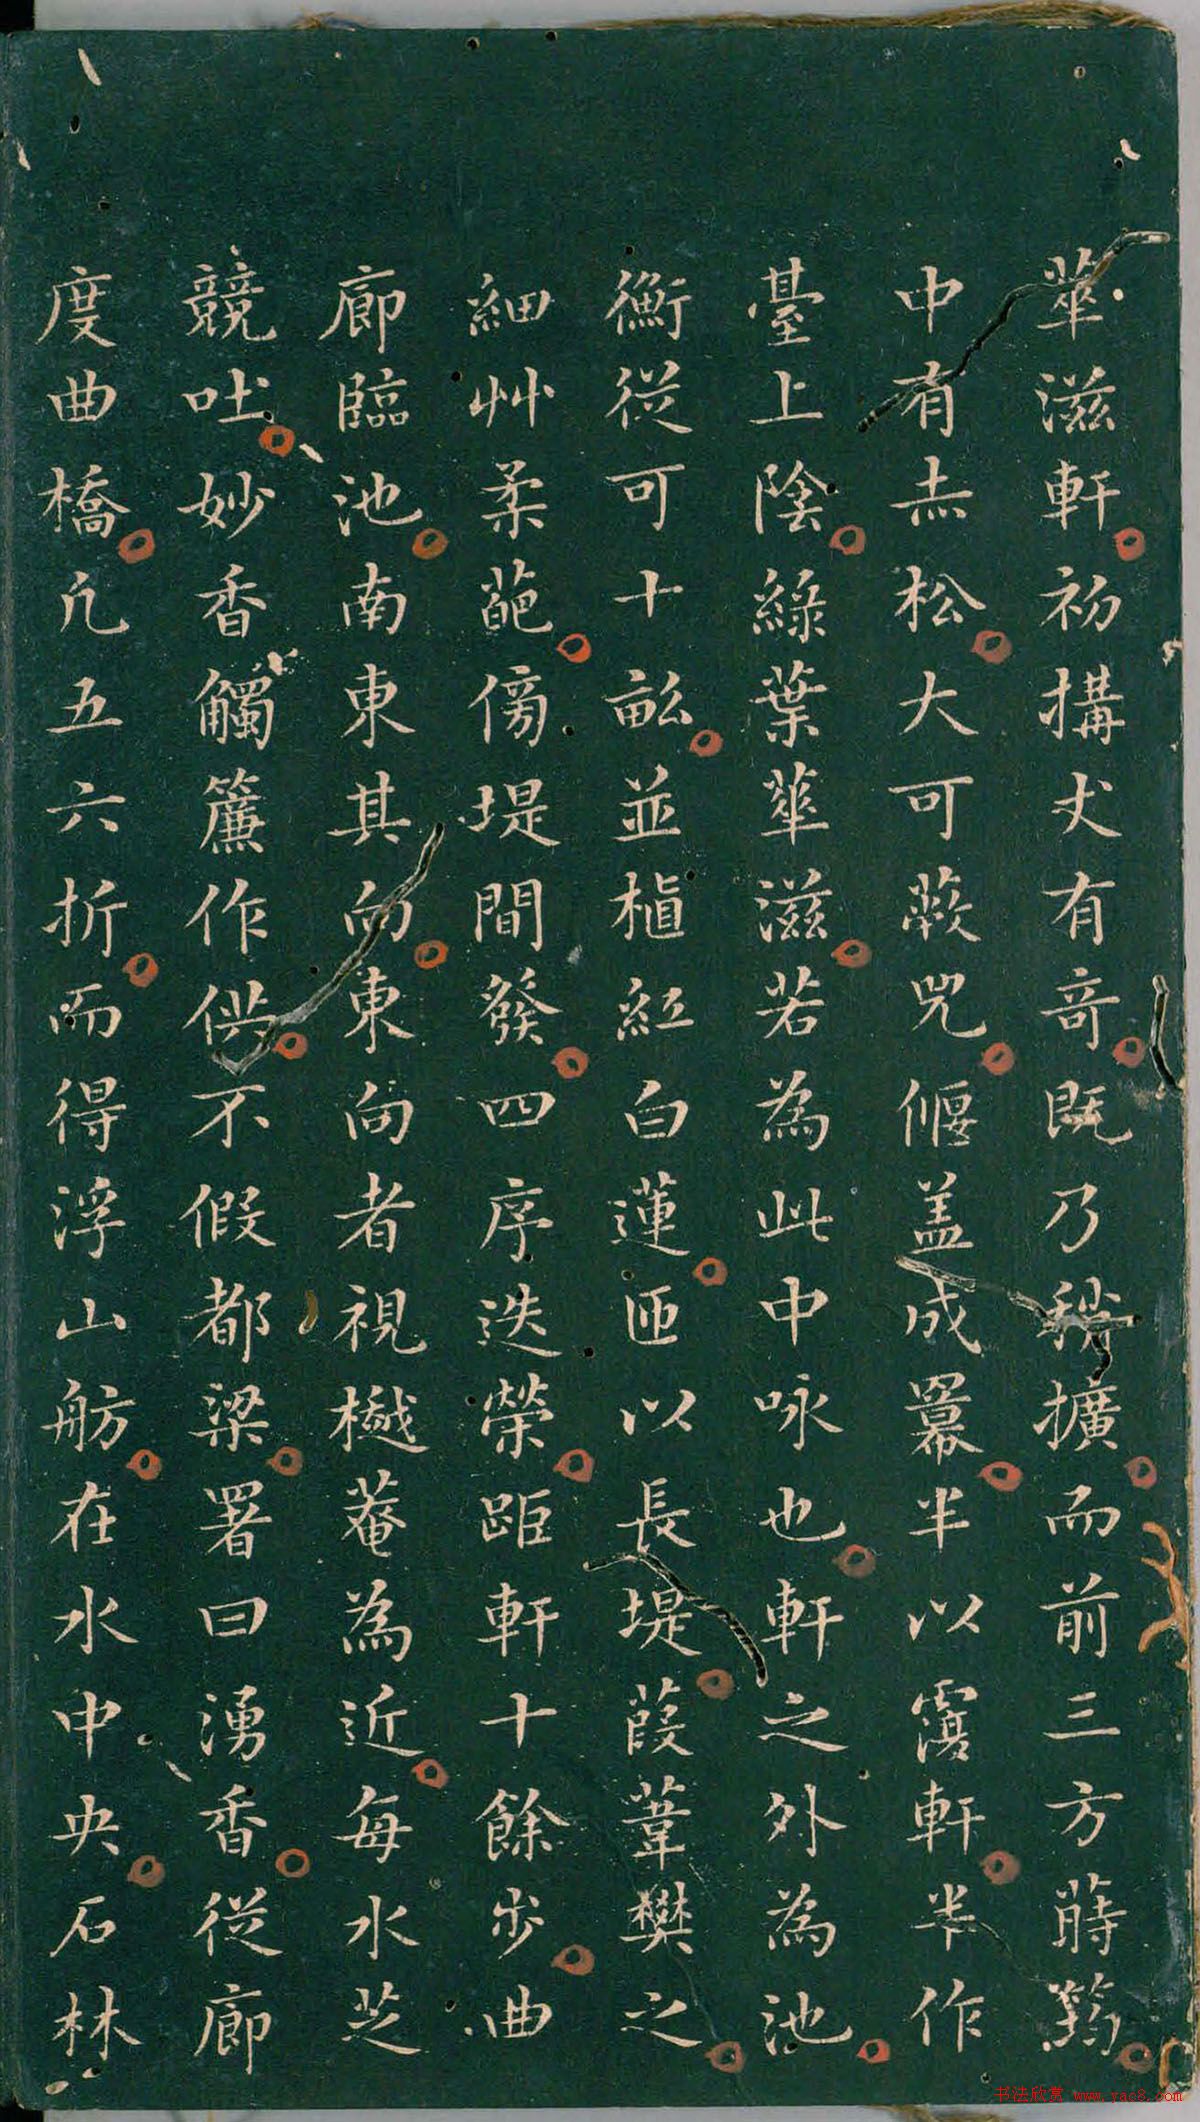 華滋軒初搆丈有奇既乃稍擴而前三方蒔篛
中有赤松大可蔽兕偃盖成幕半以覆軒半作
臺上陰綠葉華滋若為此中咏也軒之外為池
衡從可十畝並植紅白蓮匝以長堤葭葦樊之
細艸柔葩傍堤間發四序迭榮距軒十餘步曲
廊臨池南東其向東向者視樾菴為近每水芝
競吐妙香觸簾作供不假都梁署曰湧香從廊
度曲橋凢五六折而得浮山舫在水中央石林
书法欣赏 www.yac8.com